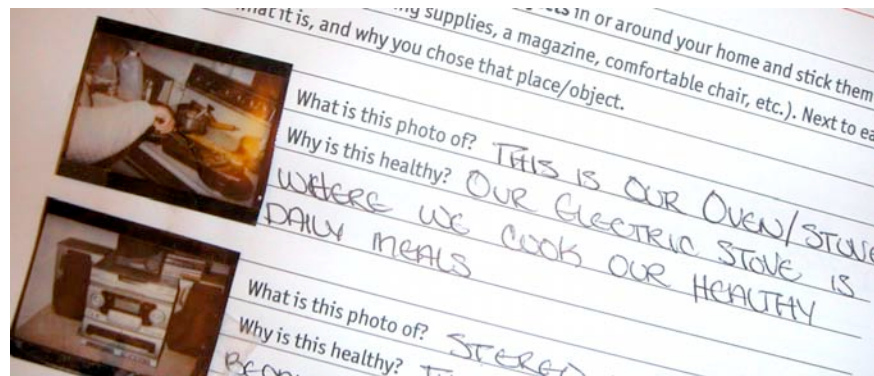 in or around your home and stick them
supplies, a magazine, comfortable chair, etc.). Next to
it is, and why you chose that place/object.
What is this photo of? THIS IS OUR OVEN/STOVE
Why is this healthy? OUR ELECTRIC STOVE IS
WHERE WE COOK OUR HEALTHY
DAILY MEALS
What is this photo of? STEREO
Why is this healthy?